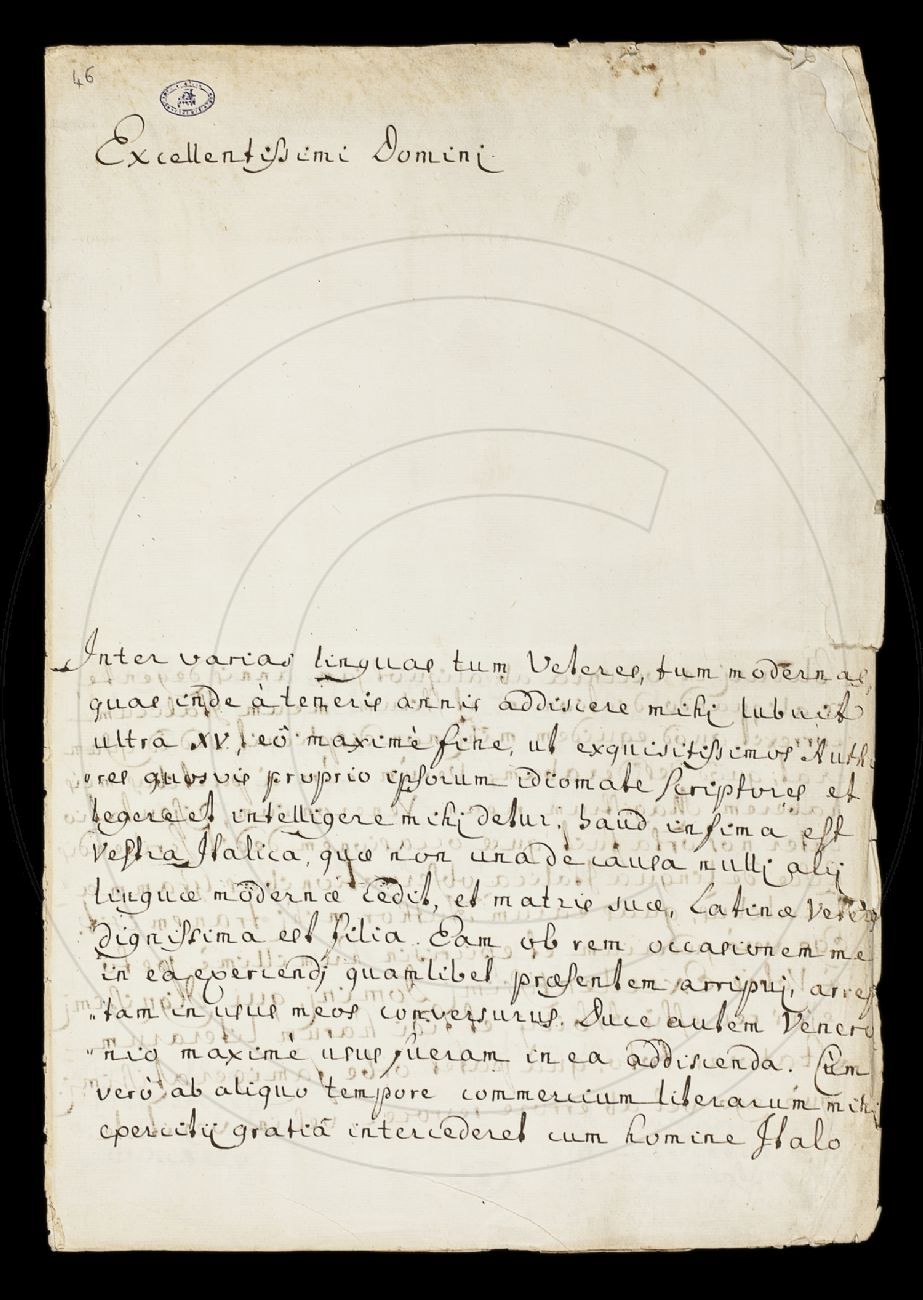 46
Excellentissimi Domini
Inter varias linguas tum Veteres, tum modernas,
quas inde à teneris annis addiscere mihi lubuit
ultra XV, eô maximè fine, ut exquisitissimos Auth
ores quosvis proprio ipsorum idiomate Scriptores et
legere et intelligere mihi detur, haud infima est
Vestra Italica, quæ non una de causa nulli alij
linguæ modernæ cedit, et matris suæ, Latinæ Veteris
dignissima est filia. Eam ob rem occasionem me
in ea exercendj quamlibet præsentem arripuj, arrep
„tam in usus meos conversurus. Duce autem Venero
„nio maximè usus fueram in ea addiscenda. Cùm
verò ab aliquo tempore commercium literarum mihi
exercitij gratiâ intercederet cum homine Italo